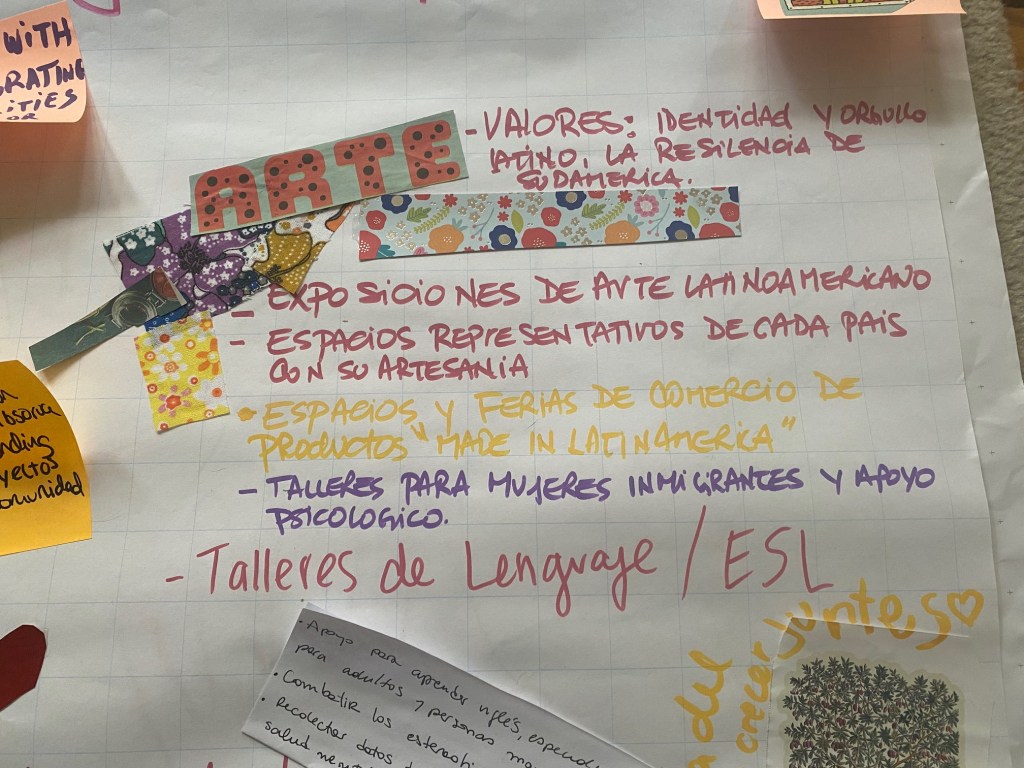 WITH
RATING
ITIES
OR
ARTE
- VALORES: IDENTIDAD Y ORGULLO
LATINO, LA RESILENCIA DE
SUDAMERICA.
- EXPOSICIONES DE ARTE LATINOAMERICANO
- ESPACIOS REPRESENTATIVOS DE CADA PAIS
CON SU ARTESANIA
• ESPACIOS Y FERIAS DE COMERCIO DE
PRODUCTOS "MADE IN LATINAMERICA"
- TALLERES PARA MUJERES INMIGRANTES Y APOYO
PSICOLOGICO.
- Talleres de Lenguaje / ESL
nding
yectos
omunidad
• Apoyo para aprender ingles, especial
para adultos y personas ma
• Combatir los estereoti
• recolectar datos d
salud ment
del
crecer juntes ♡